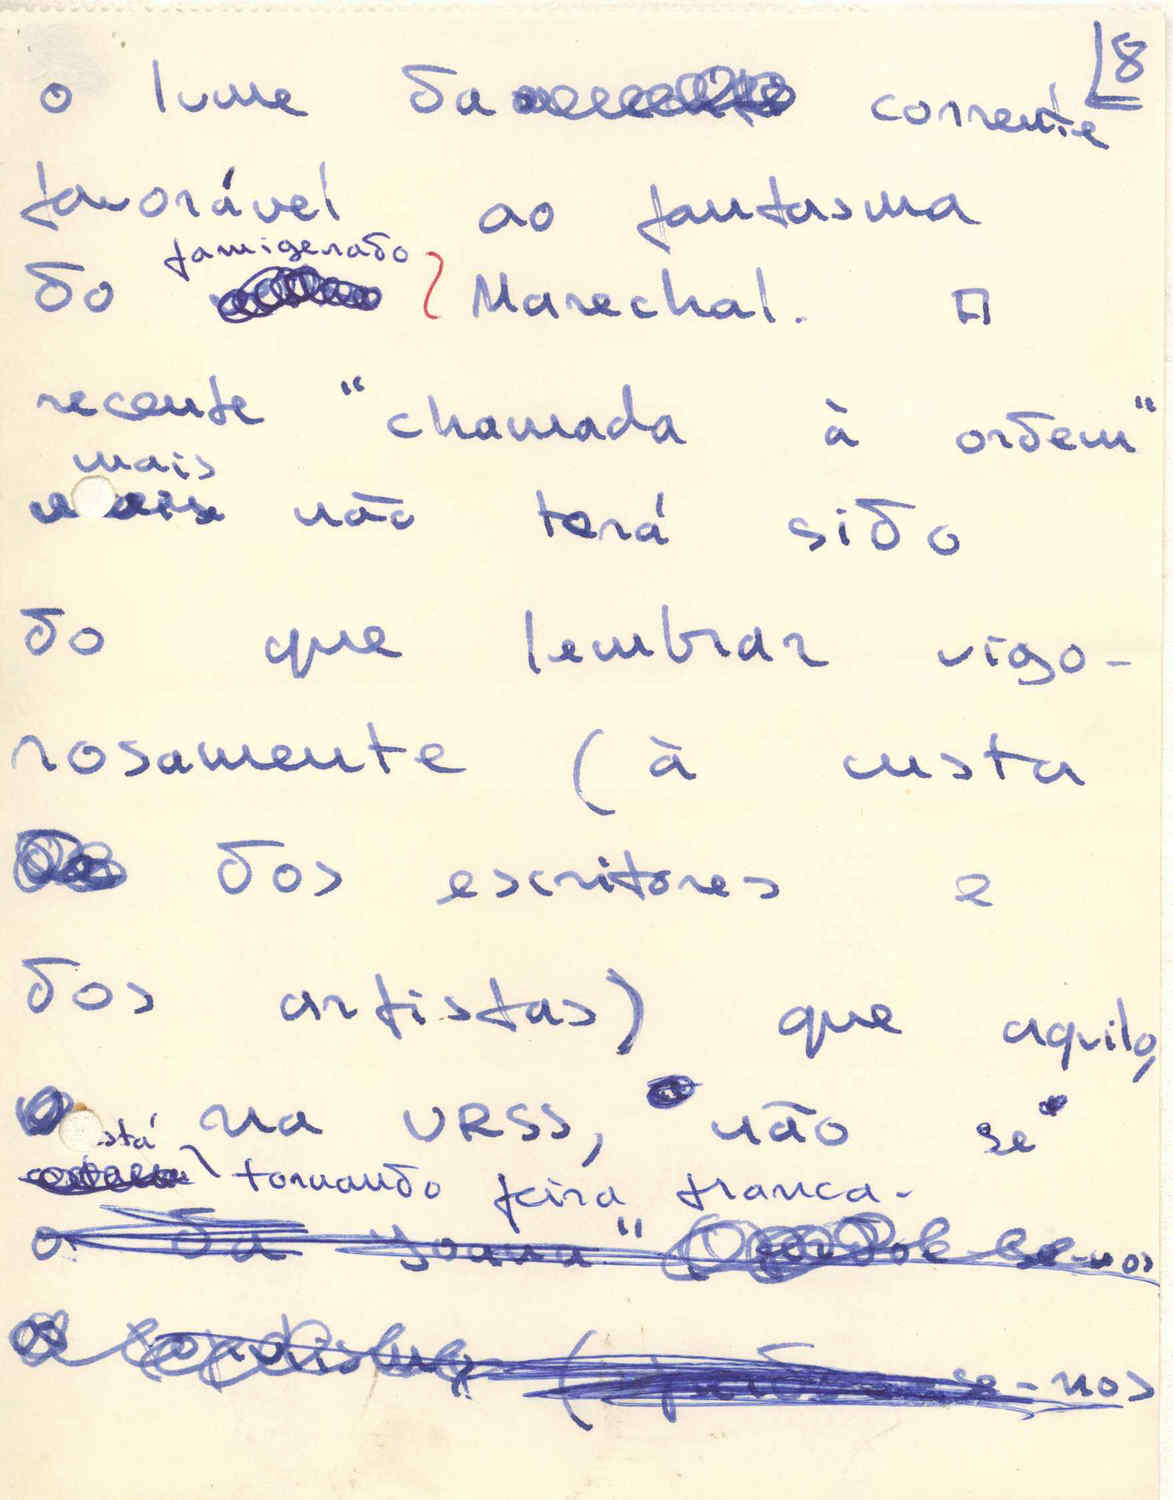 8
o lume da corrente
favorável ao fantasma
famigerado
do Marechal. A
recente "chamada à ordem"
mais
não terá sido
do que lembrar vigo-
rosamente (à custa
dos escritores e
dos artistas) que aquilo,
na URSS, não se
está tornando feira franca.
o da Joana"
(perdoe-se-nos